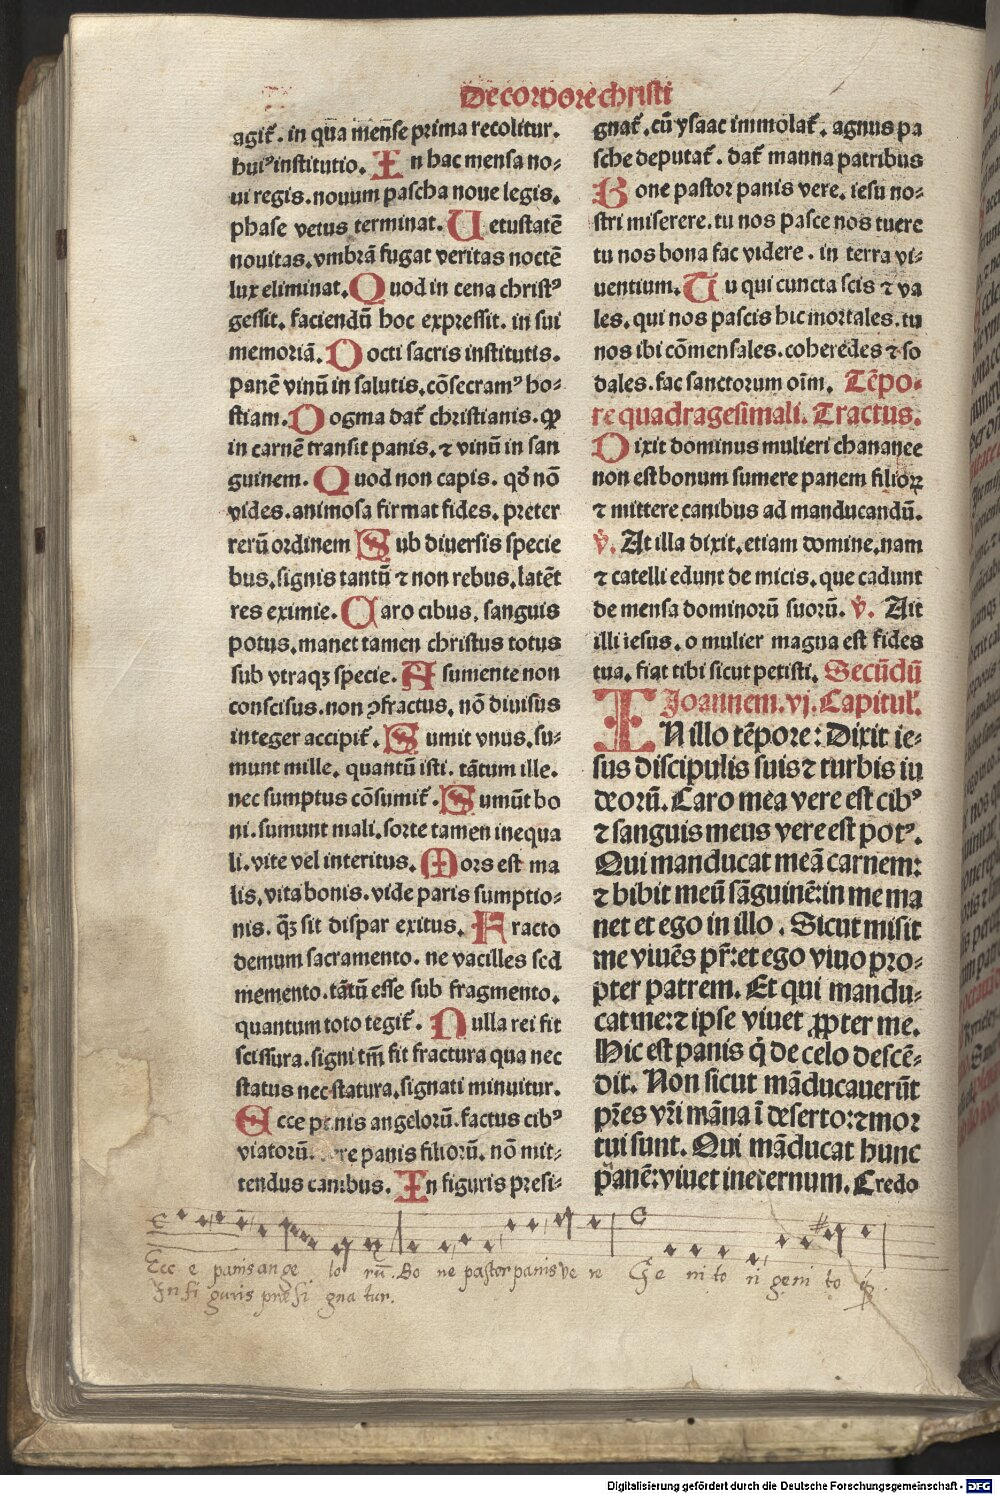 De corpore christi
agit᷑. in qua mense prima recolitur.
huiꝰ institutio. In hac mensa no⸗
ui regis. nouum pascha noue legis.
phase vetus terminat. Uetustatē
nouitas. vmbrā fugat veritas noctē
lux eliminat. Quod in cena christꝰ
gessit. faciendū hoc expressit. in sui
memoriā. Docti sacris institutis.
panē vinū in salutis. cōsecramꝰ ho⸗
stiam. Dogma dat᷑ christianis. ꝙ
in carnē transit panis. ⁊ vinū in san
guinem. Quod non capis. qd̄ nō
vides. animosa firmat fides. preter
rerū ordinem Sub diuersis specie
bus. signis tantū ⁊ non rebus. latēt
res eximie. Caro cibus. sanguis
potus. manet tamen christus totus
sub vtraqꝫ specie. A sumente non
conscisus. non ꝯfractus. nō diuisus
integer accipit᷑. Sumit vnus. su⸗
munt mille. quantū isti. tātum ille.
nec sumptus cōsumit᷑. Sumūt bo
ni. sumunt mali. sorte tamen inequa
li. vite vel interitus. Mors est ma
lis. vita bonis. vide paris sumptio⸗
nis. q̄ꝫ sit dispar exitus. Fracto
demum sacramento. ne vacilles sed
memento. tātū esse sub fragmento.
quantum toto tegit᷑. Nulla rei fit
scissura. signi tm̄ fit fractura qua nec
status nec statura. signati minuitur.
Ecce panis angelorū. factus cibꝰ
viatorū. vere panis filiorū. nō mit⸗
tendus canibus. In figuris presi⸗
gnat᷑. cū ysaac immolat᷑. agnus pa
sche deputat᷑. dat᷑ manna patribus
Bone pastor panis vere. iesu no⸗
stri miserere. tu nos pasce nos tuere
tu nos bona fac videre. in terra vi⸗
uentium. Tu qui cuncta scis ⁊ va
les. qui nos pascis hic mortales. tu
nos ibi cōmensales. coheredes ⁊ so
dales. fac sanctorum oīm. Tēpo⸗
re quadragesimali. Tractus.
Dixit dominus mulieri chananee
non est bonum sumere panem filioꝝ
⁊ mittere canibus ad manducandū.
v̄. At illa dixit. etiam domine. nam
⁊ catelli edunt de micis. que cadunt
de mensa dominorū suorū. v̄. Ait
illi iesus. o mulier magna est fides
tua. fiat tibi sicut petisti. Secūdū
Joannem. vj. Capitul᷑.
IN illo tēpore: Dixit ie⸗
sus discipulis suis ⁊ turbis iu
deorū. Caro mea vere est cibꝰ
⁊ sanguis meus vere est potꝰ.
Qui manducat meā carnem:
⁊ bibit meū sāguinē: in me ma
net et ego in illo. Sicut misit
me viuēs pr̄: et ego viuo pro⸗
pter patrem. Et qui mandu⸗
cat me: ⁊ ipse viuet ꝓpter me.
Hic est panis q̇ de celo descē⸗
dit. Non sicut māducauerūt
pr̄es vr̄i māna ī deserto: ⁊ mor
tui sunt. Qui māducat hunc
panē: viuet ineternum. Credo
Ecc e panis ange lo rū. Bo ne pastor panis ve re Ge ni to ri geni to
In fi guris præsi gna tur.
Digitalisierung gefördert durch die Deutsche Forschungsgemeinschaft - DFG